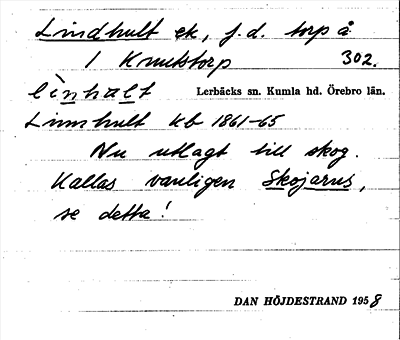 Lindhult ek, f.d. torp å
1 Knutstorp 302.
lìnhalt Lerbäcks sn. Kumla hd. Örebro län.
Linnhult kb 1861-65
Nu utlagt till skog.
Kallas vanligen Skojarns,
se detta!
DAN HÖJDESTRAND 1958